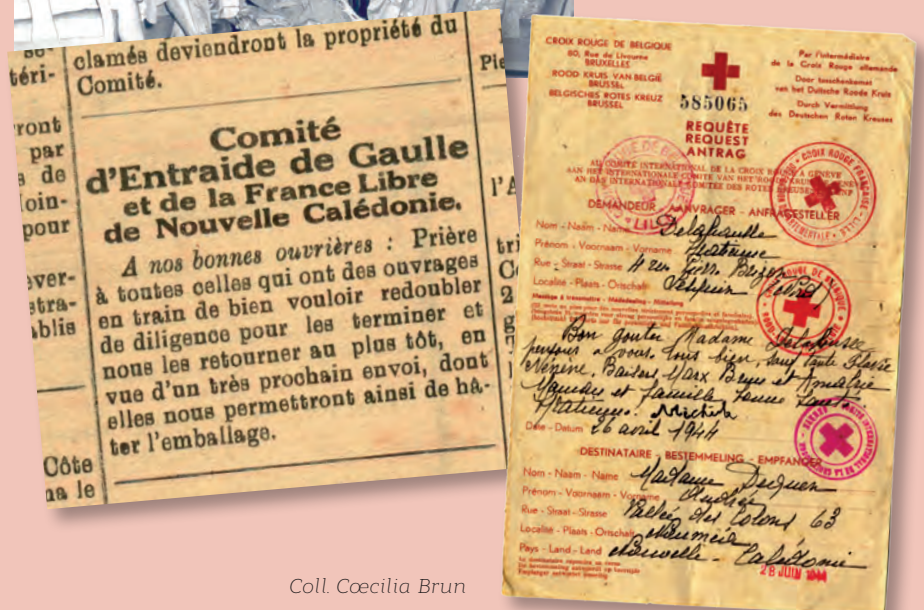 clamés deviendront la propriété du
Comité.
Comité
d'Entraide de Gaulle
et de la France Libre
de Nouvelle Calédonie.
A nos bonnes ouvrières : Prière
à toutes celles qui ont des ouvrages
en train de bien vouloir redoubler
de diligence pour les terminer et
nous les retourner au plus tôt, en
vue d'un très prochain envoi, dont
elles nous permettront ainsi de hâ-
ter l'emballage.
téri-
ront
par
de
oin-
pour
ver-
stra-
blis
Côte
na le
CROIX ROUGE DE BELGIQUE
80, Rue de Livourne
BRUXELLES
ROOD KRUIS VAN BELGIË
BRUSSEL
BELGISCHES ROTES KREUZ
BRUSSEL
585065
Par l'intermédiaire
de la Croix Rouge allemande
Door tusschenkomst
van het Duitsche Roode Kruis
Durch Vermittlung
des Deutschen Roten Kreuzes
REQUÊTE
REQUEST
ANTRAG
AU COMITÉ INTERNATIONAL DE LA CROIX ROUGE A GENÈVE
AAN HET INTERNATIONALE COMITE VAN HET ROODE KRUIS
AN DAS INTERNATIONALE COMITEE DES ROTEN KREUZES
DEMANDEUR - AANVRAGER - ANFRAGESTELLER
Nom - Naam - Name
Prénom - Voornaam - Vorname
Rue - Straat - Strasse
Localité - Plaats - Ortschaft
Bon gouter Madame
pensons a vous. tous bien, tante
Baisers Marx et
et famille bonne santé
Michel
Date - Datum 26 avril 1944
DESTINATAIRE - BESTEMMELING - EMPFANGER
Nom - Naam - Name Madame
Prénom - Voornaam - Vorname Andrée
Rue - Straat - Strasse Vallée des Colons 63
Localité - Plaats - Ortschaft Nouméa
Pays - Land - Land Nouvelle - Calédonie
28 JUIN 1944
Coll. Cœcilia Brun